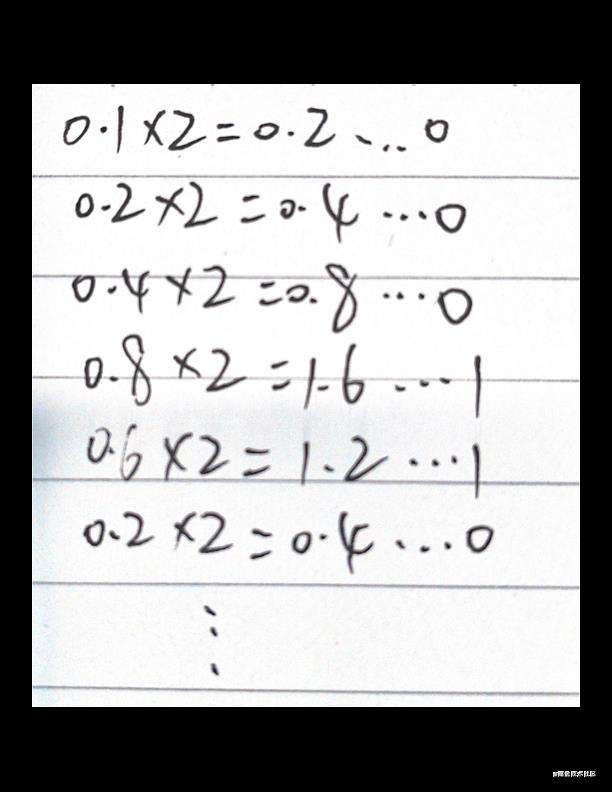 0.1×2=0.2...0
0.2×2=0.4...0
0.4×2=0.8...0
0.8×2=1.6...1
0.6×2=1.2...1
0.2×2=0.4...0
⋮